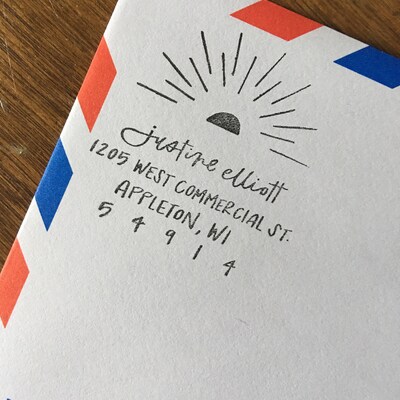 justine elliott
1205 WEST COMMERCIAL ST.
APPLETON, WI
5 4 9 1 4